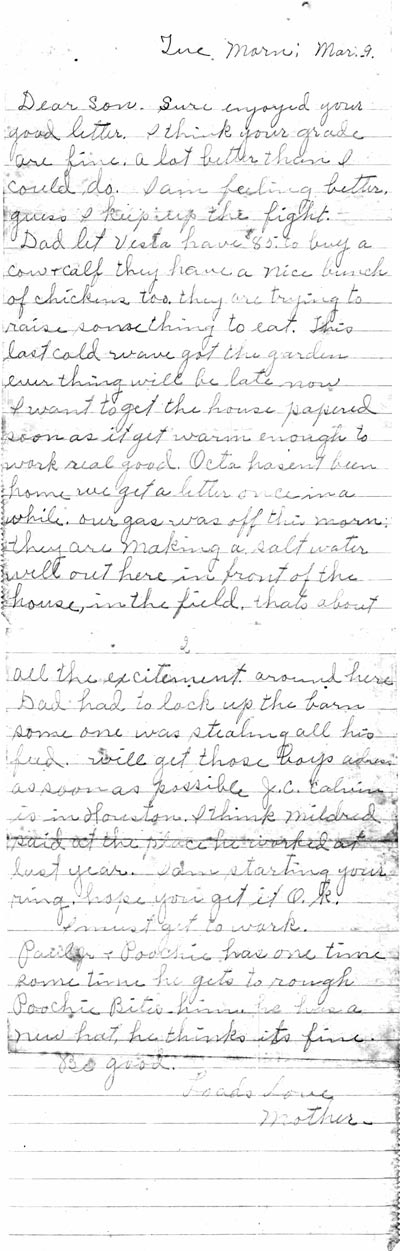 Tue Morn; Mar. 9.
Dear Son. Sure enjoyed your
good letter. I think your grade
are fine. a lot better than I
could do. I am feeling better.
guess I keep up the fight.
Dad let Vesta have $85. to buy a
cow + calf they have a nice bunch
of chickens too, they are trying to
raise something to eat. This
last cold wave got the garden
ever thing will be late now
I want to get the house papered
soon as it get warm enough to
work real good. Octa hasent been
home we get a letter once in a
while. our gas was off this morn;
they are making a salt water
well out here in front of the
house, in the field. thats about
2
all the excitement around here
Dad had to lock up the barn
some one was stealing all his
feed. will get those boys adress
as soon as possible J.C. Calvin
is in Houston. I think Mildred
said at the place he worked at
last year. I am starting your
ring. hope you get it O.K.
I must get to work.
+ Poochie has one time
some time he gets to rough
Poochie Bites him. he has a
new hat, he thinks its fine.
Be good.
Loads Love
Mother-